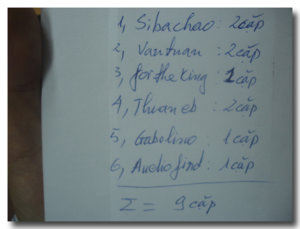 1, Sibachao: 2cặp
2, Vantuan: 2cặp
3, fortheking: 1cặp
4, Thuaneb: 2cặp
5, Gabolino: 1cặp
6, Audiofind: 1cặp
Σ = 9cặp